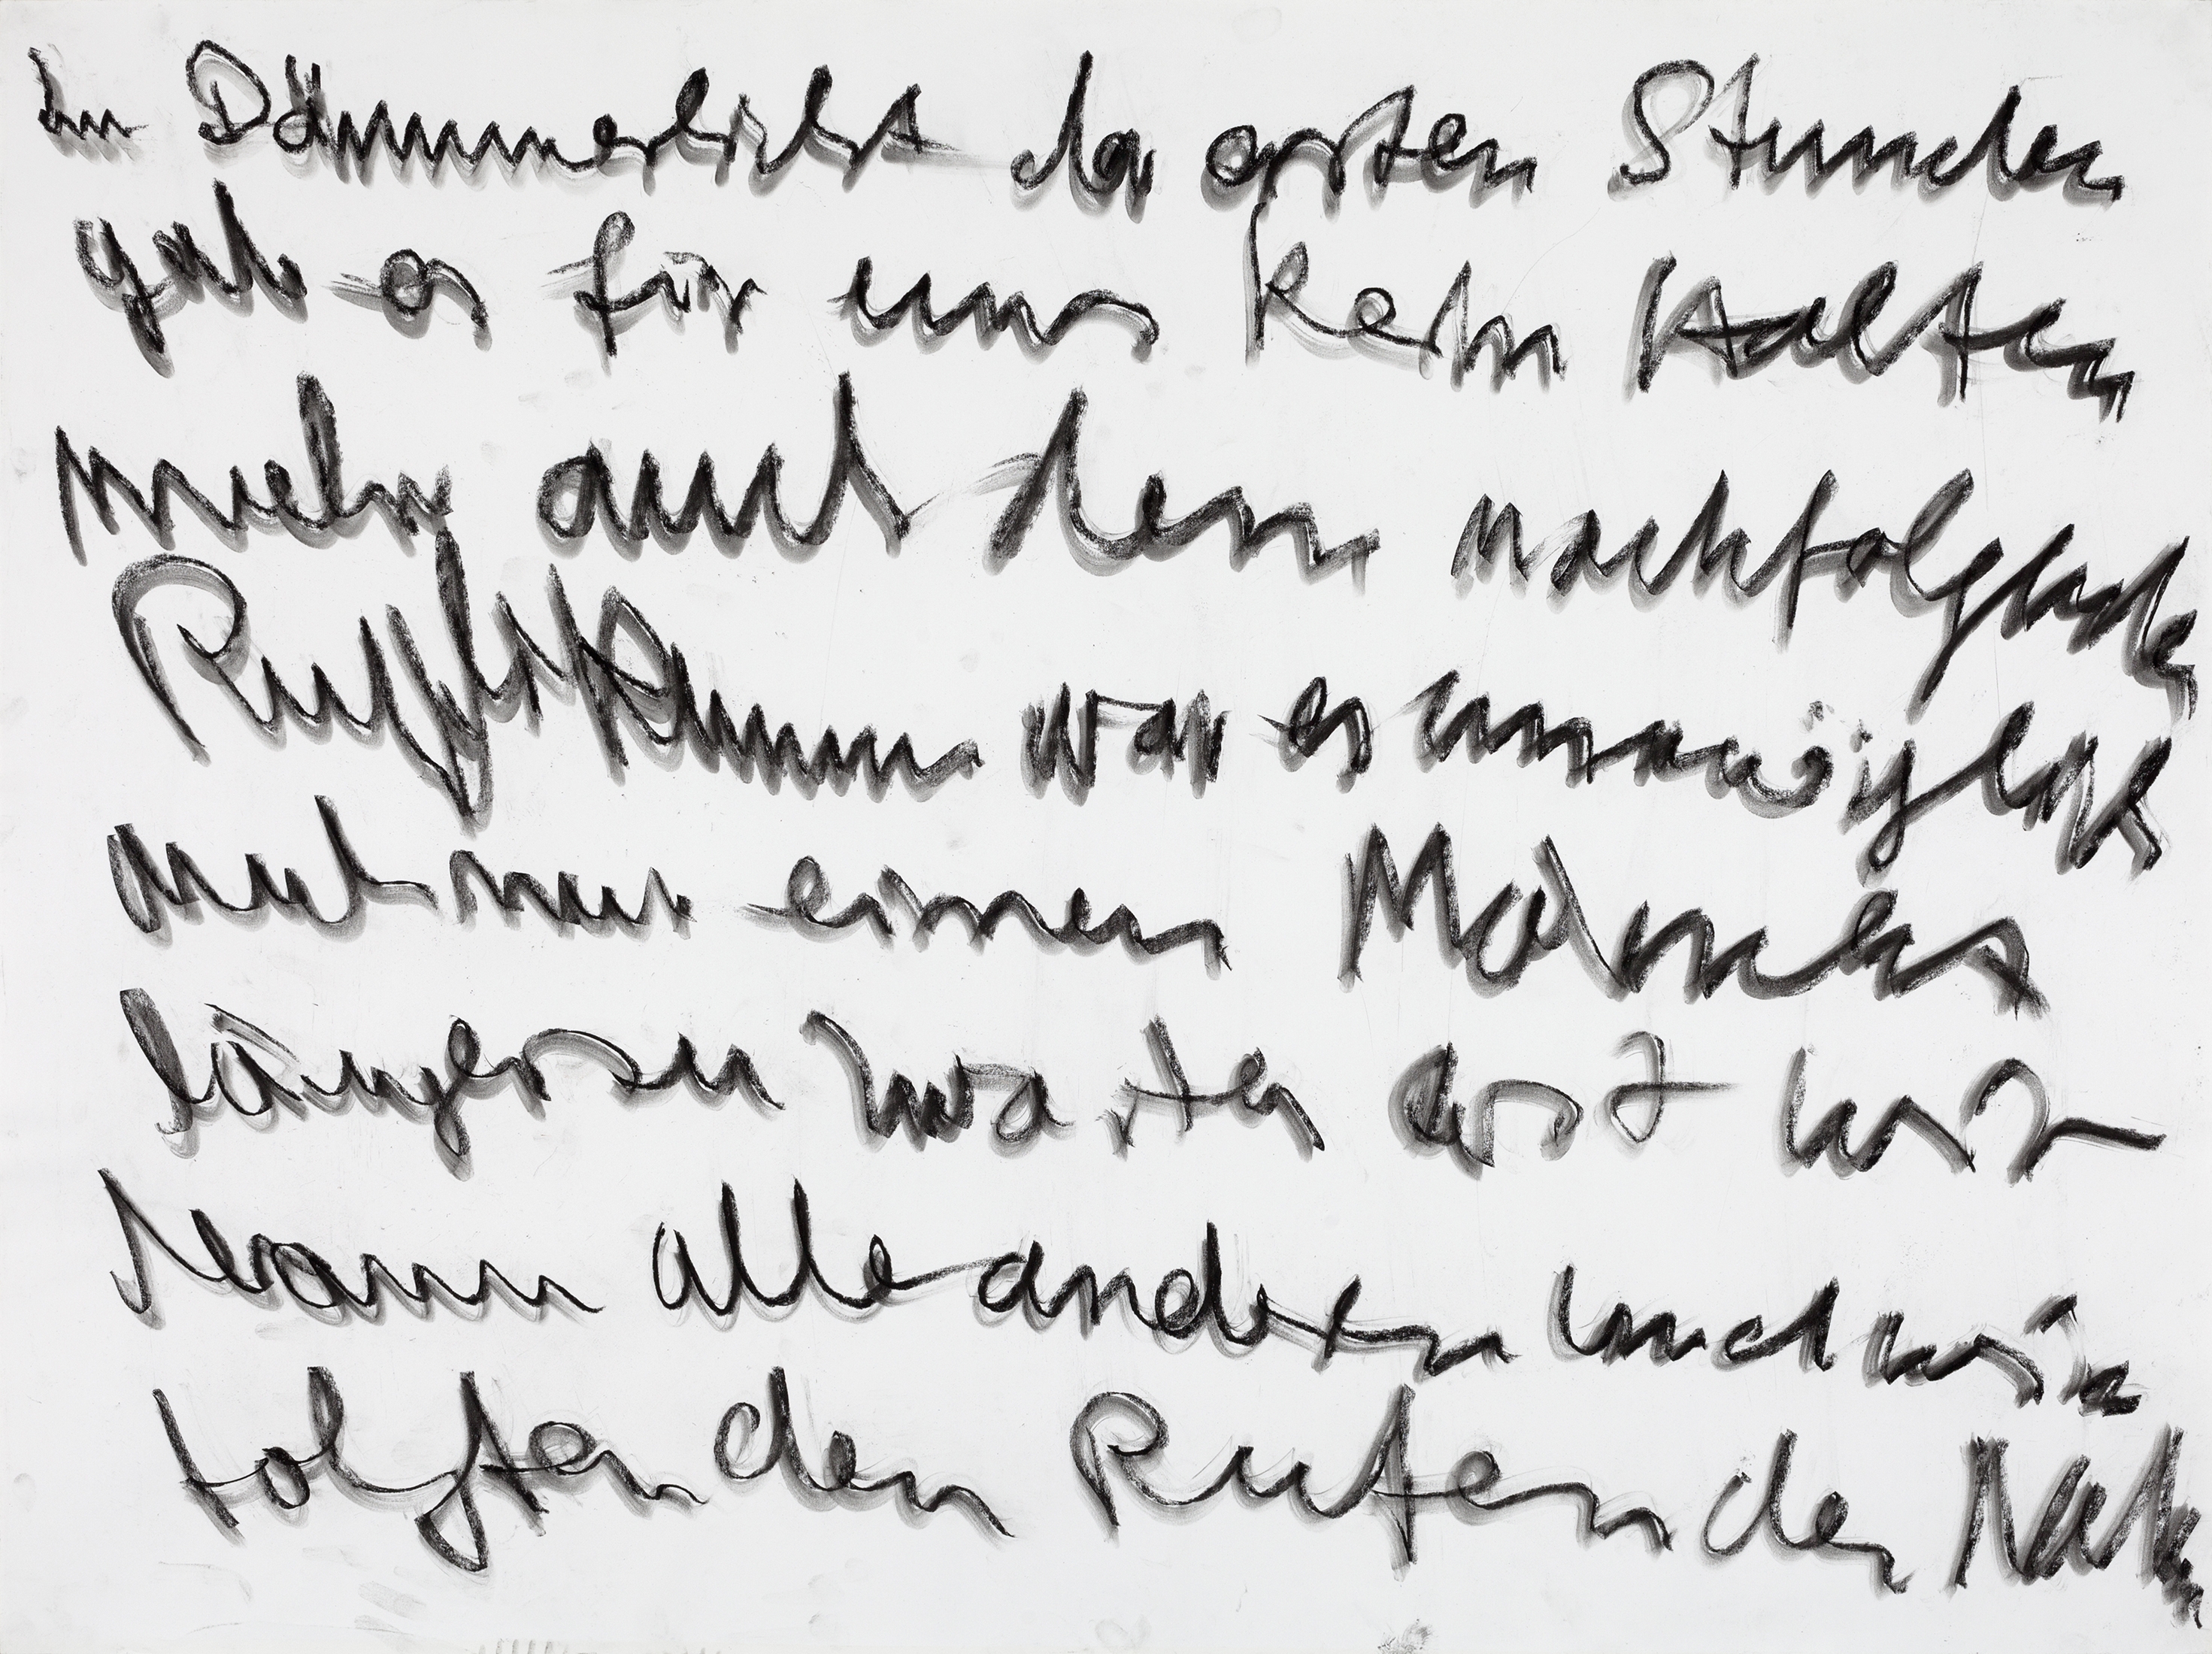 Im Dämmerlicht der ersten Stunden
gab es für uns kein Halten
mehr auch dem nachfolgenden
war es unmöglich
auch nur einen Moment
länger zu warten erst wir
dann alle anderen und wir
folgten den Rufen der Natur